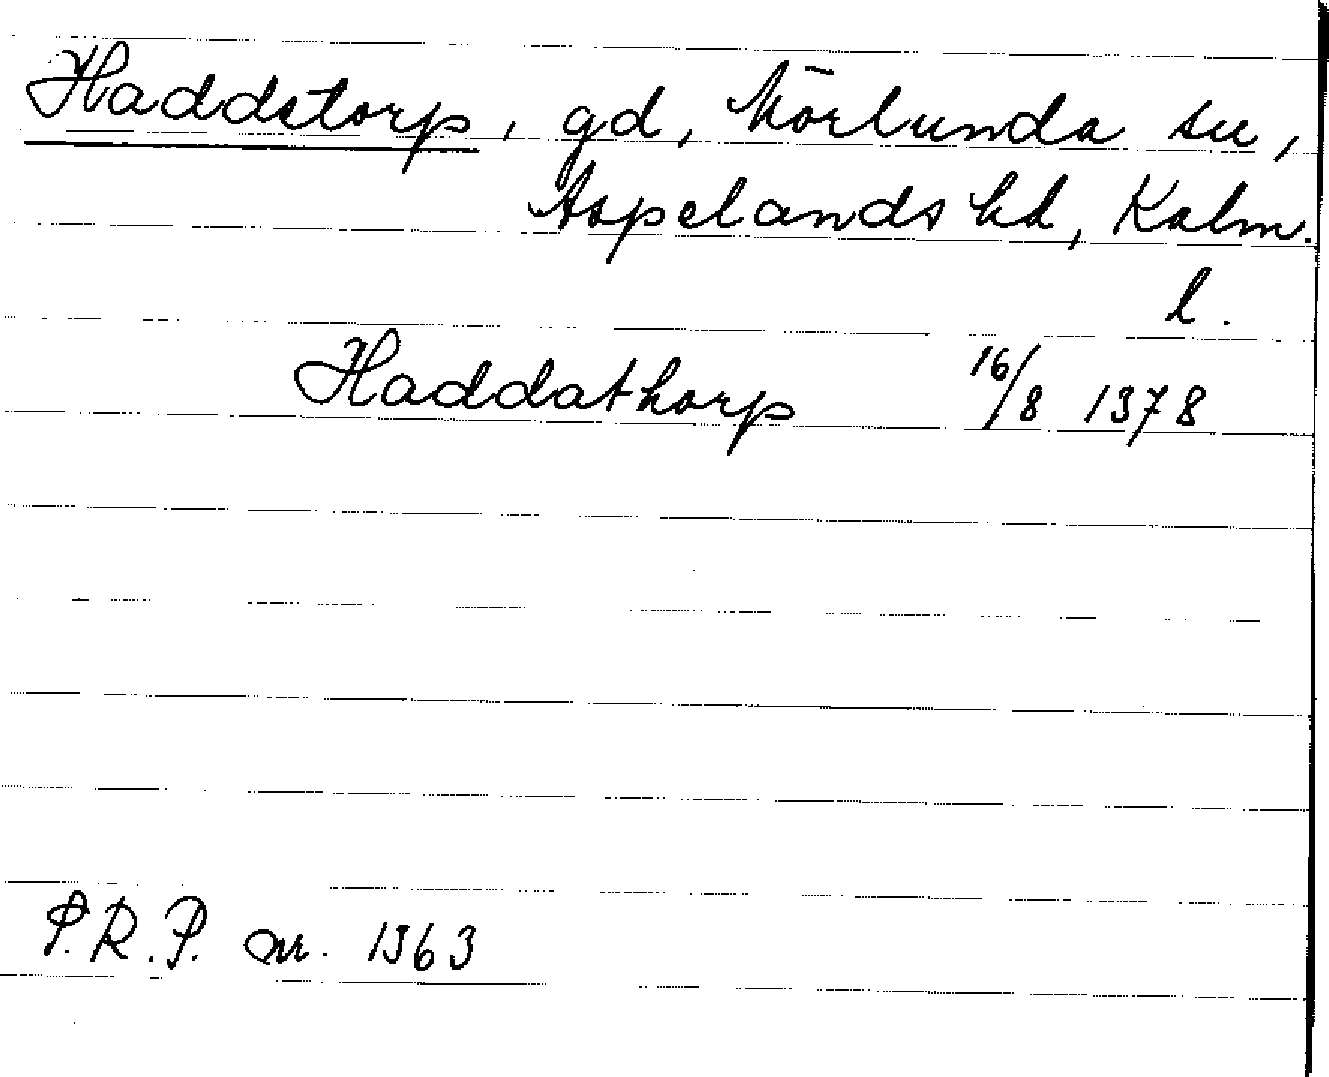 Haddstorp, gd, Mörlunda sn,
Aspelands hd, Kalm.
l.
Haddathorp 16/8 1378
P.R.P. nr. 1363